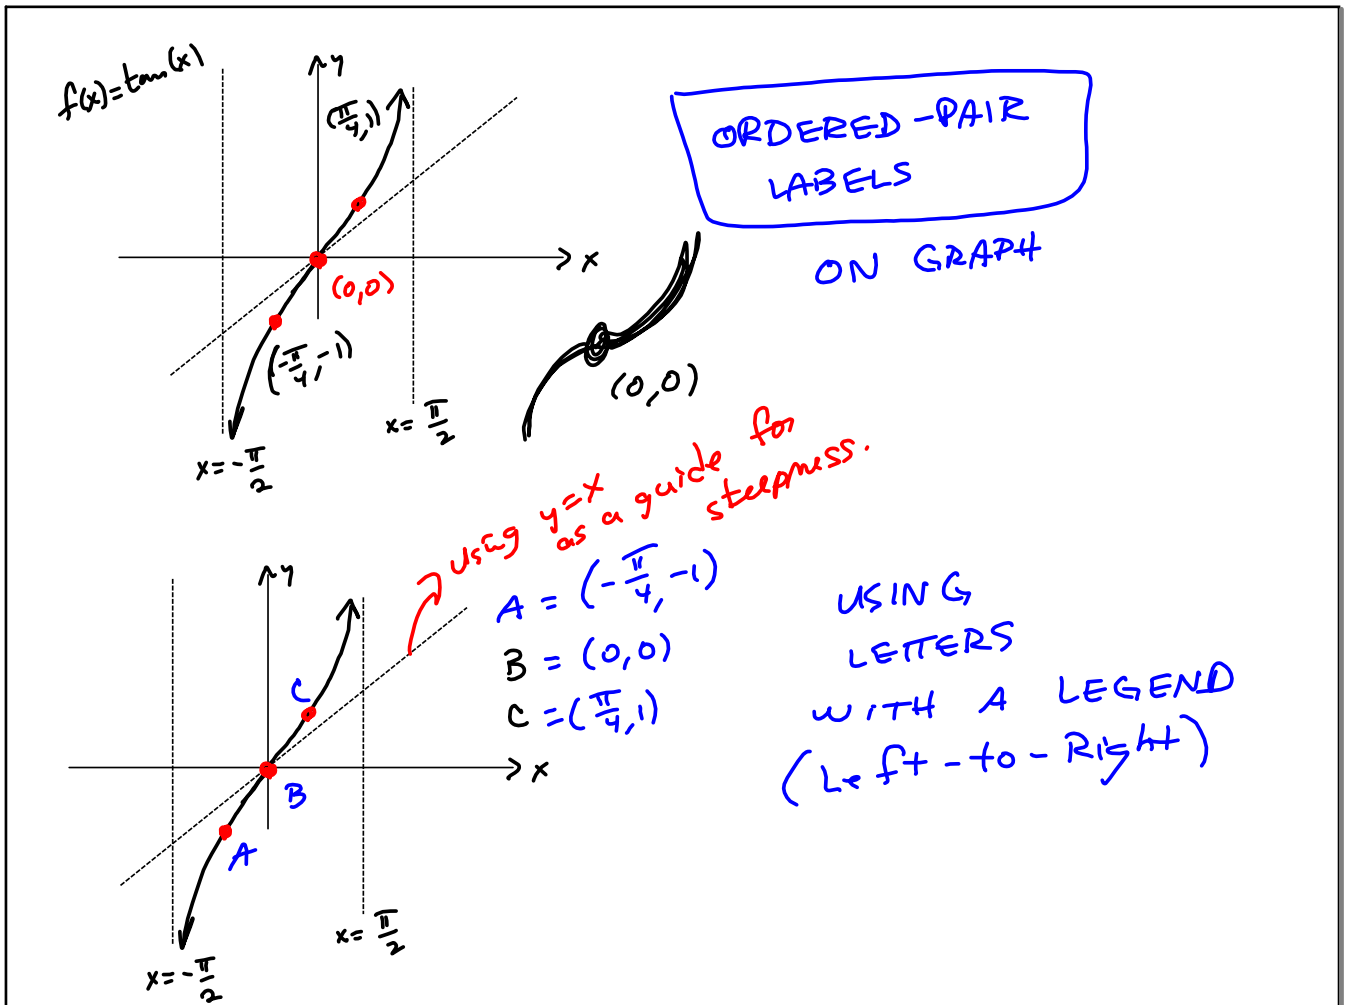 f(x)=tan(x)
y
(π/4, 1)
x
(0,0)
(-π/4, -1)
x = π/2
x = -π/2
ORDERED-PAIR
LABELS
ON GRAPH
(0,0)
using y=x
as a guide for
steepness.
y
C
x
B
A
x = π/2
x = -π/2
A = (-π/4, -1)
B = (0,0)
C = (π/4, 1)
USING
LETTERS
WITH A LEGEND
(Left-to-Right)